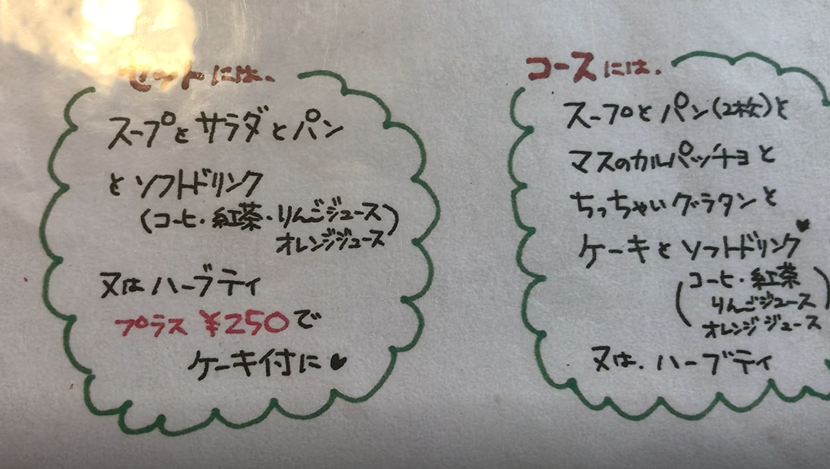 セットには、
スープとサラダとパン
とソフトドリンク
(コーヒ・紅茶・りんごジュース
オレンジジュース)
又はハーブティ
プラス ¥250で
ケーキ付に♥
コースには、
スープとパン(2枚)と
マスのカルパッチョと
ちっちゃいグラタンと
ケーキとソフトドリンク♥
(コーヒ・紅茶
りんごジュース
オレンジジュース)
又は、ハーブティ